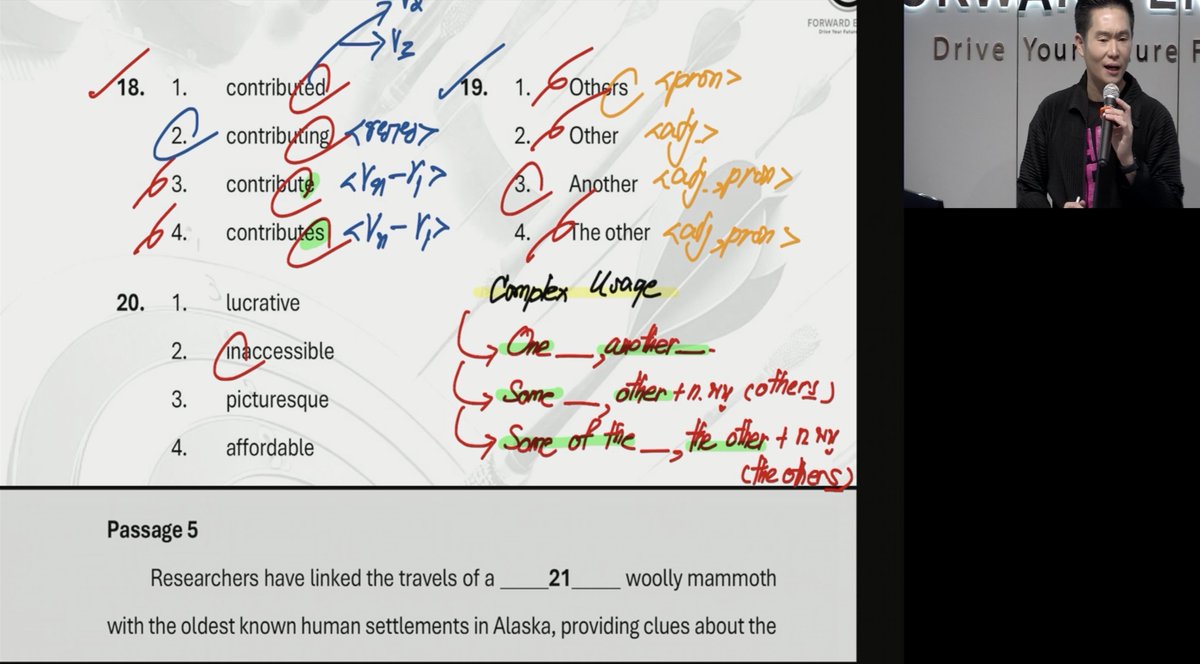 FORWARD E
Drive Your Futur
Drive Your ure F
V2
18. 1. contributed
2. contributing
3. contribute
4. contributes
19. 1. Others <pron>
2. Other <adj>
3. Another <adj, pron>
4. The other <adj, pron>
20. 1. lucrative
2. inaccessible
3. picturesque
4. affordable
Complex Usage
One __, another __.
Some __, other + n. (others)
Some of the __, the other + n
(the others)
Passage 5
Researchers have linked the travels of a _____21_____ woolly mammoth
with the oldest known human settlements in Alaska, providing clues about the